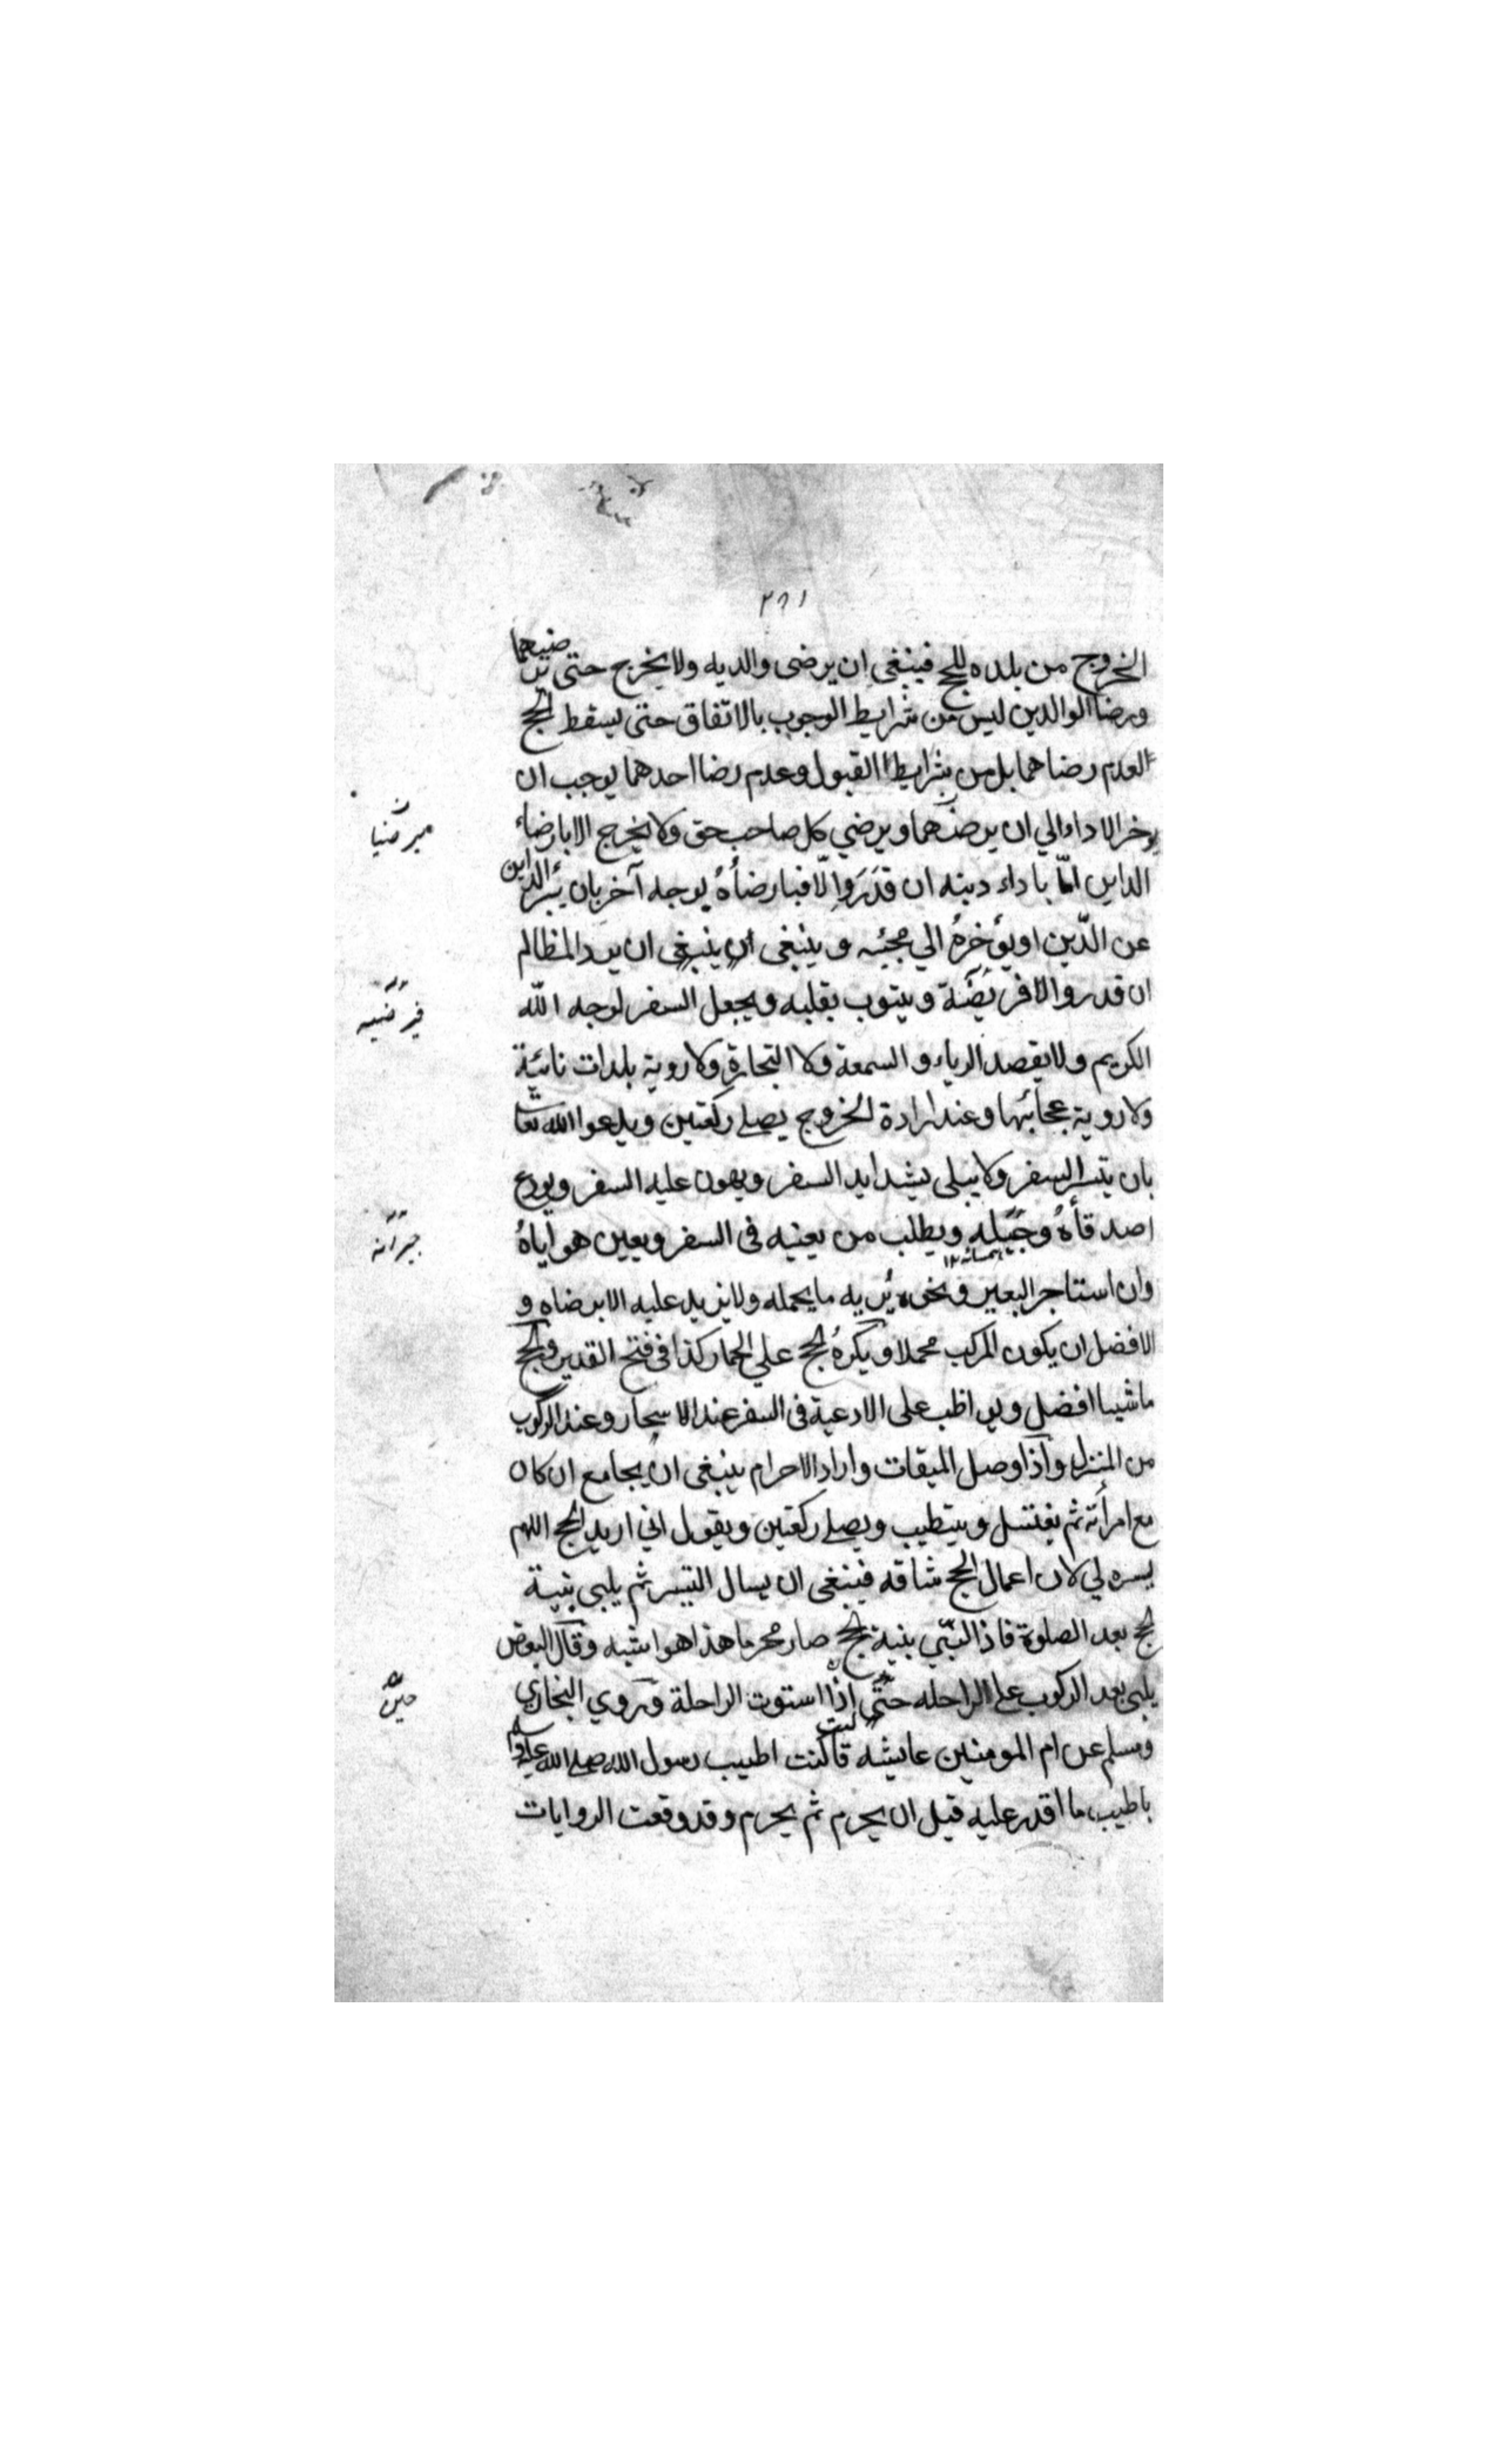 ٢٦١
الخروج من بلده للحج فينبغي ان يرضى والديه ولا يخرج حتى يرضيهما
ورضا الوالدين ليس من شرايط الوجوب بالاتفاق حتى يسقط الحج
لعدم رضاهما بل من شرايط القبول وعدم رضا احدهما يوجب ان
يوخر الاداء الي ان يرضهما ويرضي كل صاحب حق ولا يخرج الا بارضاء
يرضيا
الداين امّا باداء دينه ان قدَرَ والّا فبارضأهُ بوجه آخر بان يبرّء الداين
عن الدّين او يؤخرهُ الي مجيئه و ينبغي ان ينبغي ان يرد المظالم
ان قدر والا فريضة ويتوب بقلبه ويجعل السفر لوجه الله
فيرضيه
الكريم ولا يقصد الرياء و السمعة ولا التجارة ولا روية بلدات نائية
ولا روية عجائبها وعند ارادة الخروج يصلے ركعتين ويدعوا الله تعا
بان يتيسر السفر ولا يبلى بشدايد السفر ويهون عليه السفر ويودع
اصدقأهُ و ويطلب من يعينه فى السفر ويعين هو اياهُ
جيرانه
وان استاجر البعير ونحوه يُريه ما يحمله ولا يزيد عليه الا برضاه و
الافضل ان يكون المركب محملا ويكرهُ الحج علي الحمار كذا فى فتح القدير والحج
ماشيا افضل ويواظب على الادعية فى السفر عند الاسحار وعند الركوب
من المنزل واذا وصل الميقات واراد الاحرام ينبغى ان يجامع ان كان
مع امرأته ثم يغتسل ويتطيب ويصلے ركعتين ويقول اني اريد الحج اللهم
يسره لي لان اعمال الحج شاقه فينبغى ان يسال التيسر ثم يلبى بنية
الحج بعد الصلوة فاذا لبّي بنية الحج صار محرما هذا هو اشبه وقال البعض
يلبى بعد الركوب علے الراحله حتّى اذا استوت الراحلة وروي البخاري
حين
ومسلم عن ام المومنين عايشه قالت كنت اطيب رسول الله صلے الله عليه وسلم
باطيب ما اقدر عليه قبل ان يحرم ثم يحرم وقد وقعت الروايات